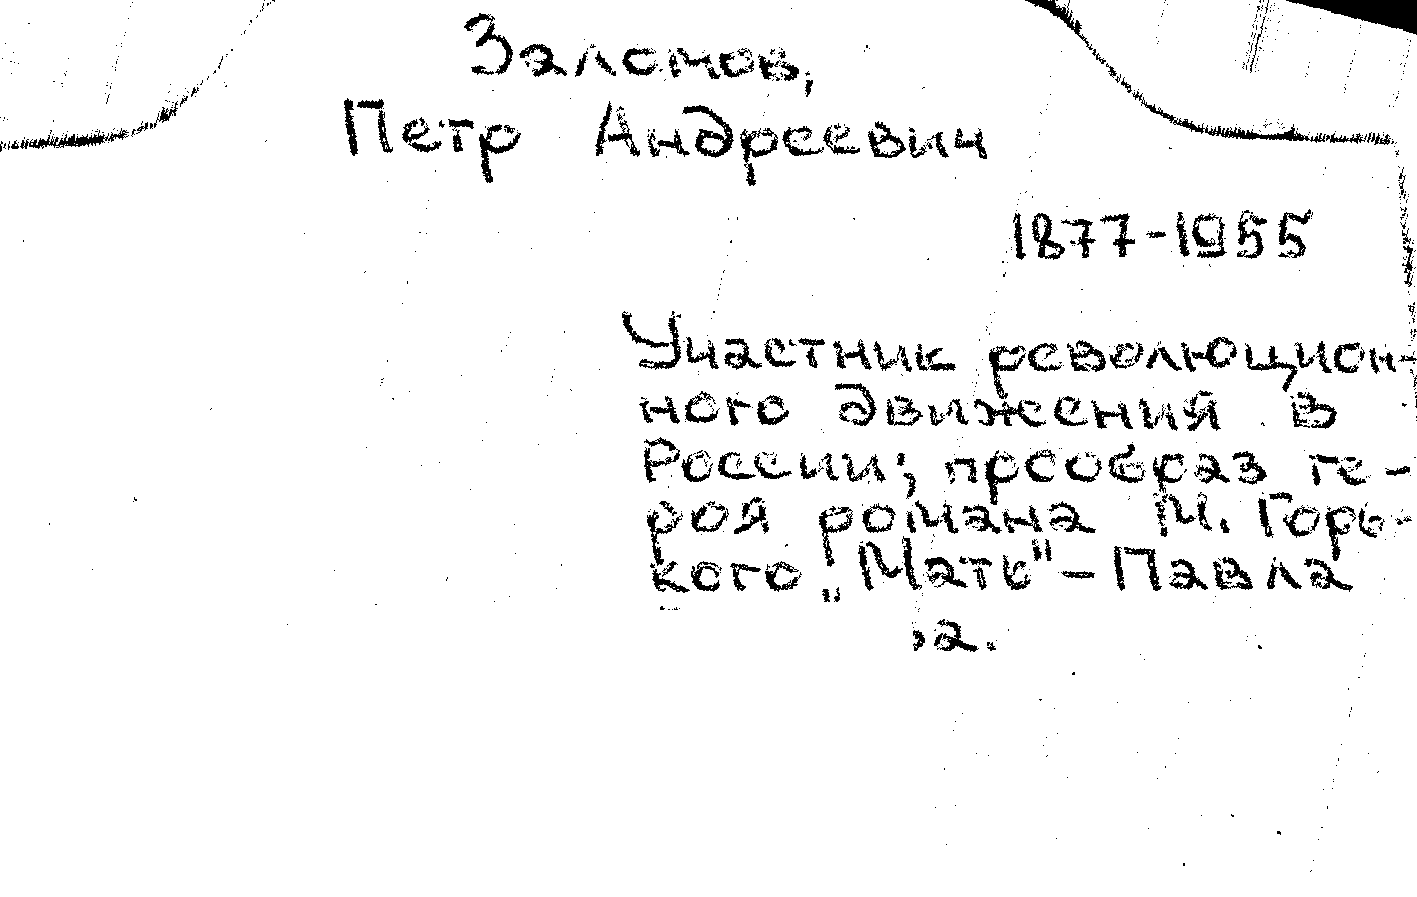 Заломов,
Петр Андреевич
1877-1955
Участник революцион-
ного движения в
России; прообраз ге-
роя романа М. Горь-
кого „Мать" - Павла